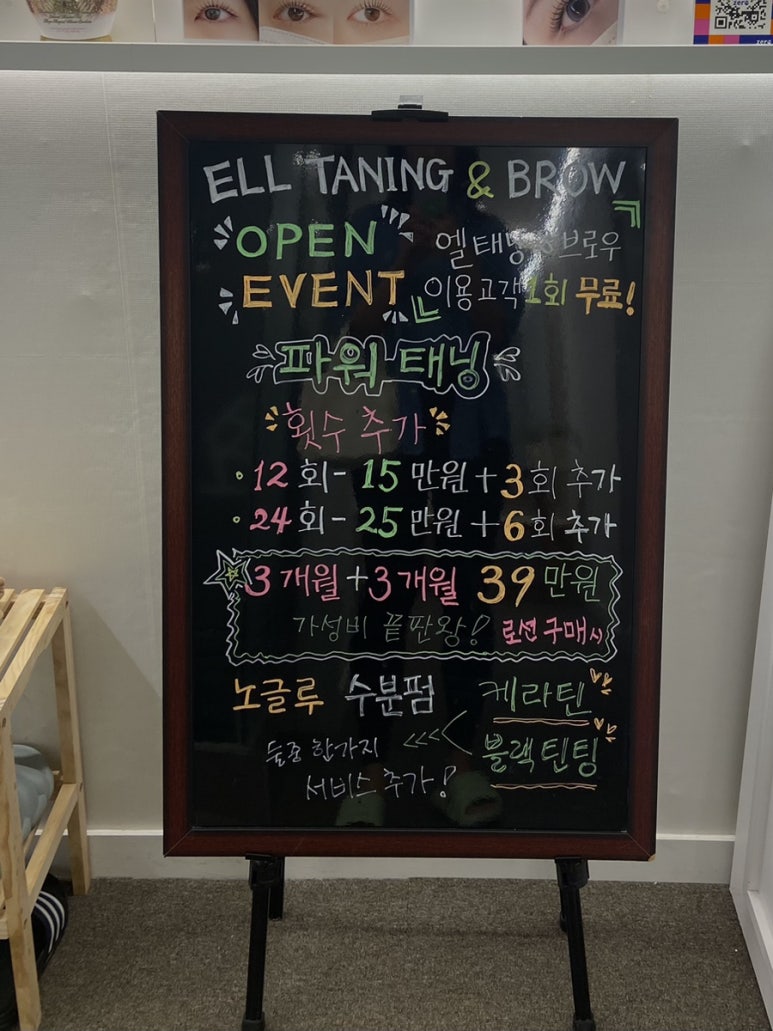 ELL TANING & BROW
OPEN
EVENT
엘 태닝 & 브로우
이용고객 1회 무료!
파워 태닝
횟수 추가
• 12 회 - 15 만원 + 3 회 추가
• 24 회 - 25 만원 + 6 회 추가
3 개월 + 3 개월 39 만원
가성비 끝판왕! 로션 구매시
노글루 수분펌
케라틴
블랙틴팅
둘중 한가지
서비스 추가!